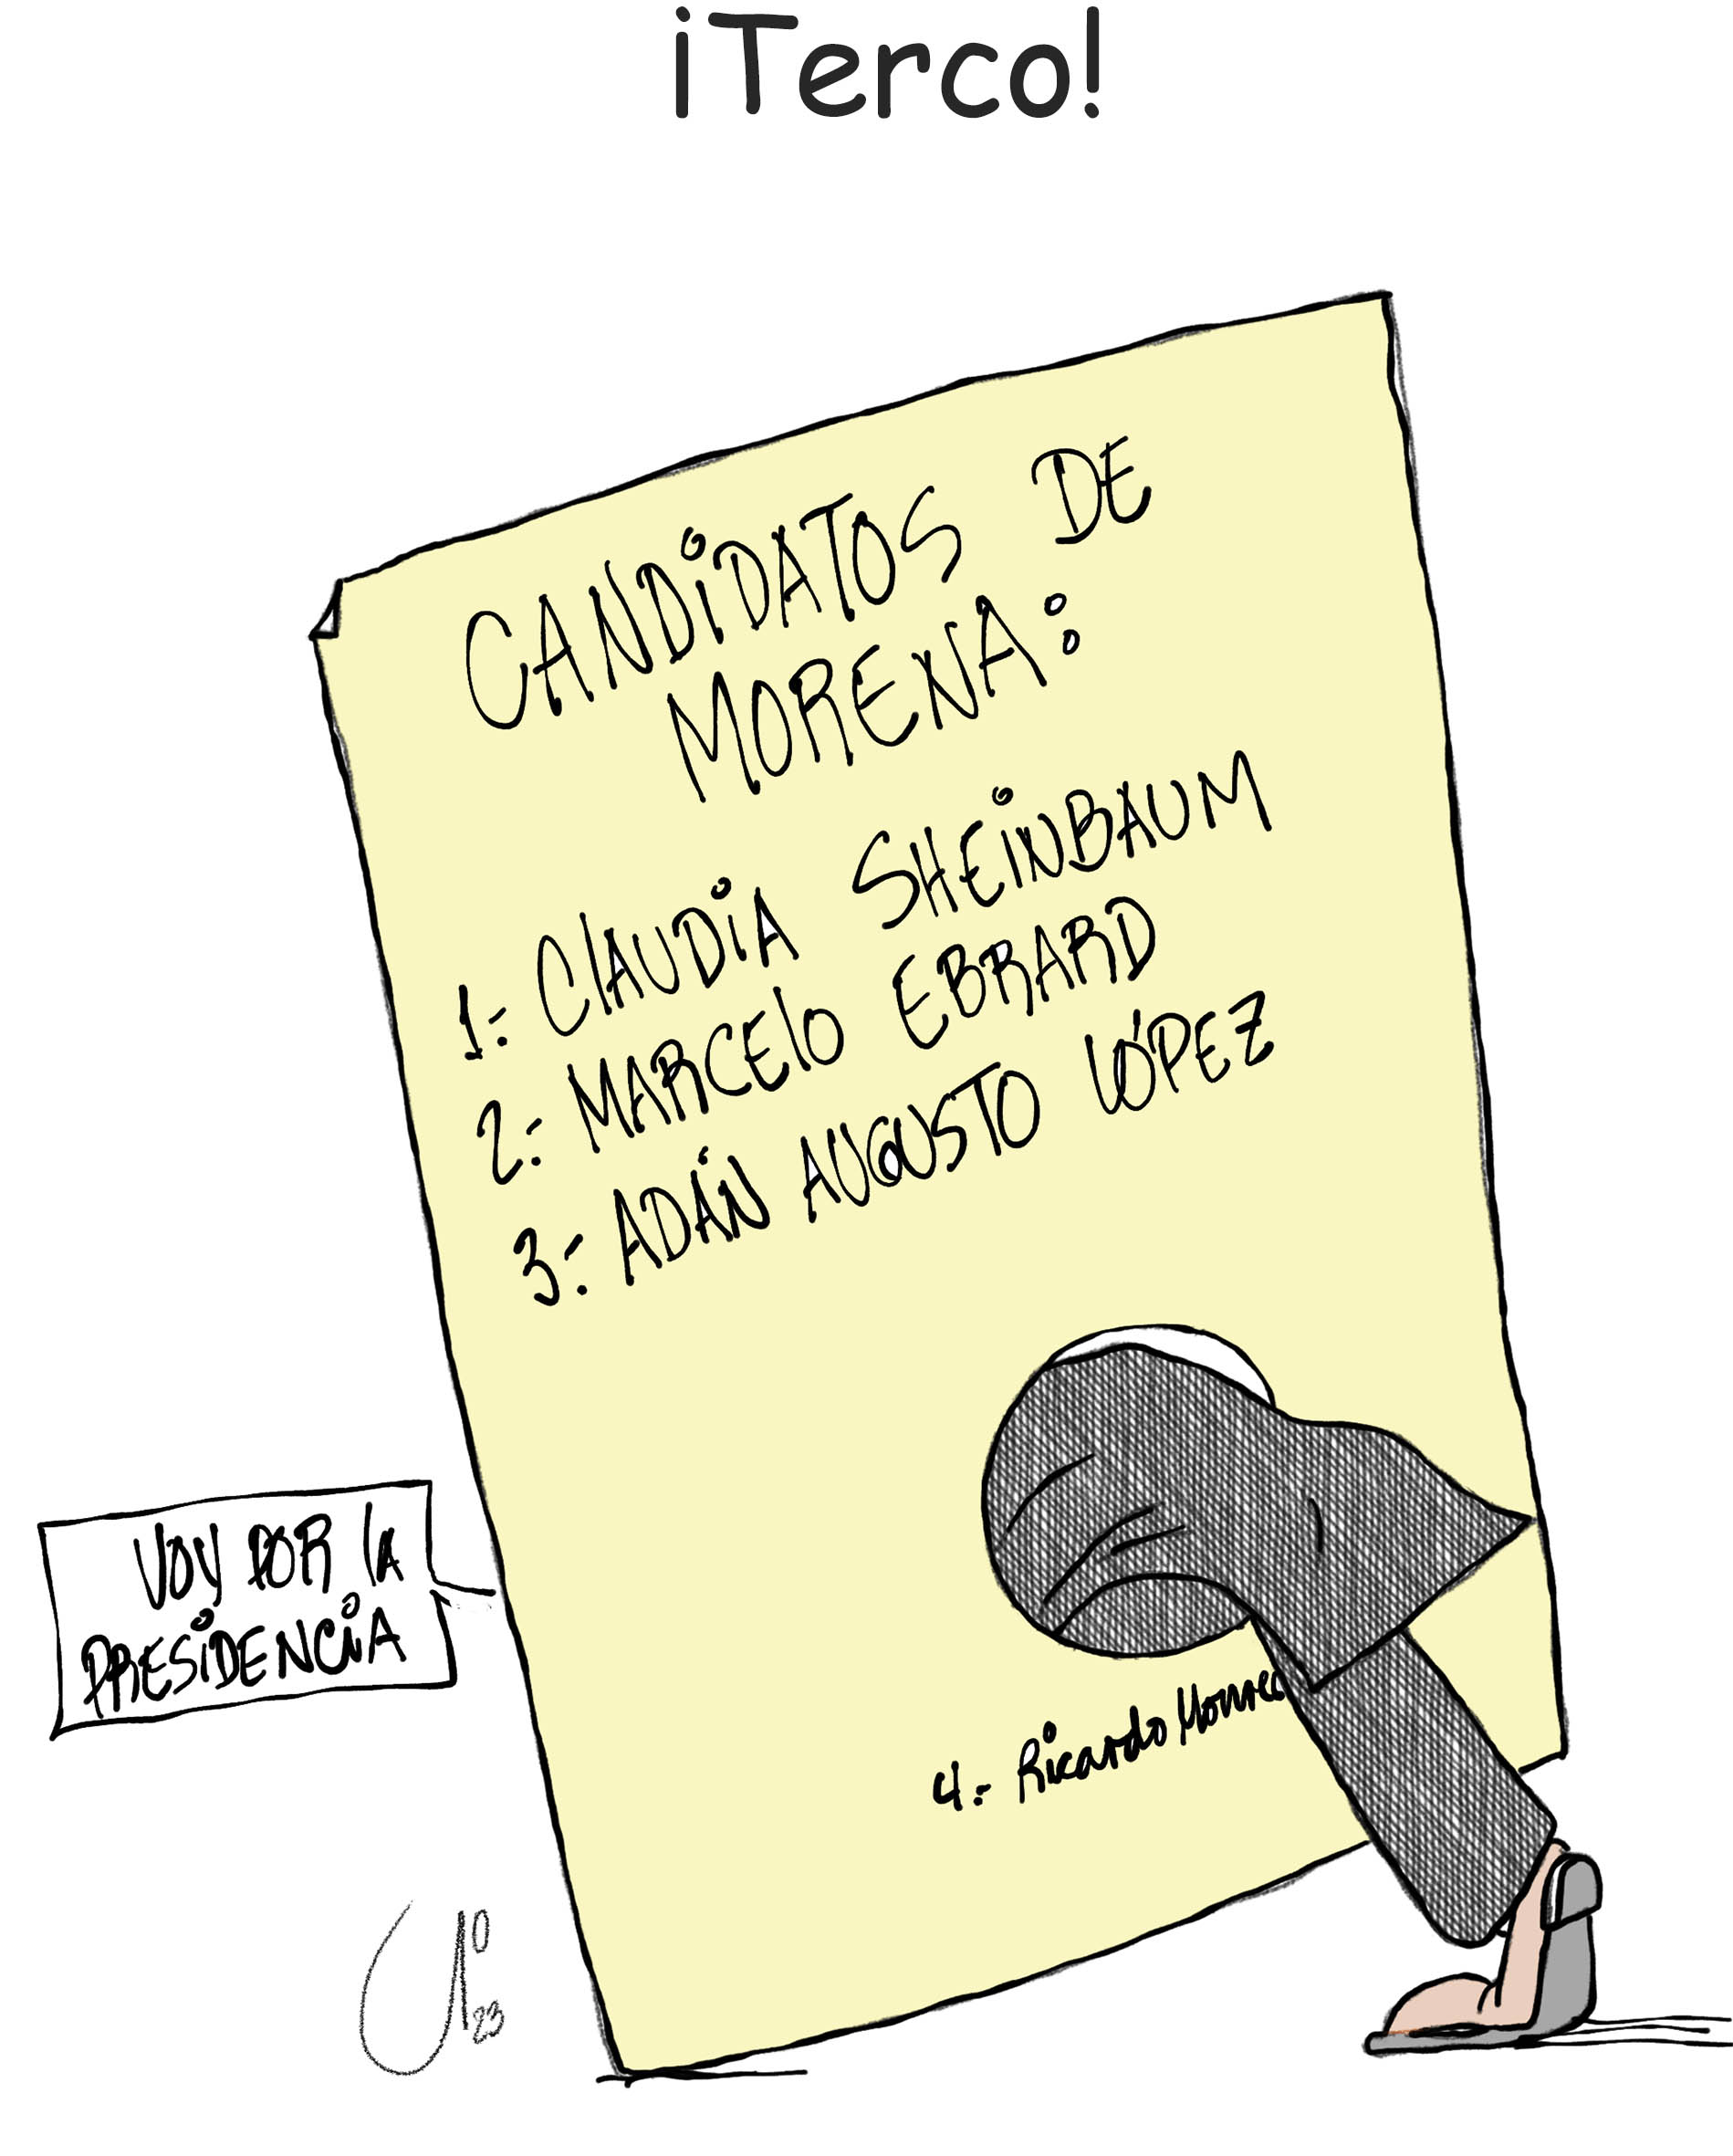 ¡Terco!
CANDIDATOS DE
MORENA:
1: CLAUDIA SHEINBAUM
2: MARCELO EBRARD
3: ADÁN AUGUSTO LÓPEZ
VOY POR LA
PRESIDENCIA
4: Ricardo Monrea
23